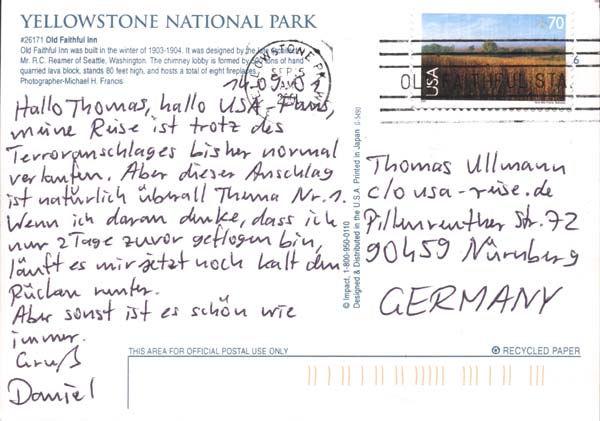 YELLOWSTONE NATIONAL PARK
#26171 Old Faithful Inn
Old Faithful Inn was built in the winter of 1903-1904. It was designed by the late architect
Mr. R.C. Reamer of Seattle, Washington. The chimney lobby is formed by 500 tons of hand
quarried lava block, stands 80 feet high, and hosts a total of eight fireplaces.
Photographer-Michael H. Francis
14-09-01
Hallo Thomas, hallo USA-Fans,
meine Reise ist trotz des
Terroranschlages bisher normal
verlaufen. Aber dieser Anschlag
ist natürlich überall Thema Nr. 1.
Wenn ich daran denke, dass ich
nur 2 Tage zuvor geflogen bin,
läuft es mir jetzt noch kalt den
Rücken runter.
Aber sonst ist es schön wie
immer.
Gruß
Daniel
© Impact, 1-800-950-0110
Designed & Distributed in the U.S.A. Printed in Japan G-5490
YELLOWSTONE
SEP
AM
2001
OLD FAITHFUL STA.
70
USA
Thomas Ullmann
c/o usa-reise.de
Pillenreuther Str. 72
90459 Nürnberg
GERMANY
THIS AREA FOR OFFICIAL POSTAL USE ONLY
RECYCLED PAPER